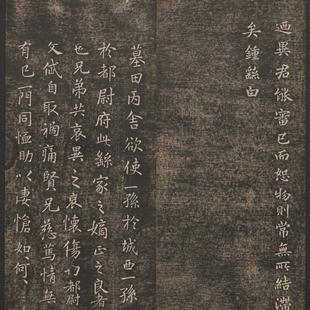 迺異君能審己而恕物則常無所結滯
矣鍾繇白
墓田丙舍欲使一孫於城西一孫
於都尉府此繇家之嫡正之良者
也兄弟共哀異之哀懷傷切都尉
文岱自取禍痛賢兄慈篤情無
有已一門同恤助以悽愴如何如何